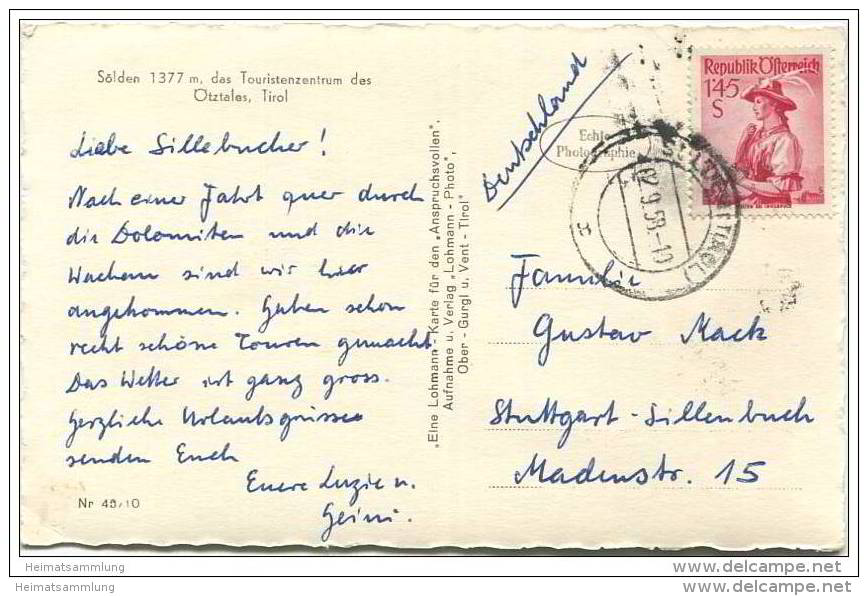 Sölden 1377 m, das Touristenzentrum des
Ötztales, Tirol
Liebe Sillebucher!
Nach einer Fahrt quer durch
die Dolomiten und die
Wachau sind wir hier
angekommen. Haben schon
recht schöne Touren gemacht.
Das Wetter ist ganz gross.
Herzliche Urlaubsgrüsse
senden Euch
Euere Luzie u.
Heini.
Nr 48/10
„Eine Lohmann-Karte für den „Anspruchsvollen".
Aufnahme u. Verlag „Lohmann-Photo",
Ober-Gurgl u. Vent-Tirol"
Deutschland
Echte
Photographie
Republik Österreich
1'45
S
SÖLDEN (TIROL)
Familie
Gustav Mack
Stuttgart-Sillenbuch
Madenstr. 15
Heimatsammlung
Heimatsammlung
www.delcampe.net
www.delcampe.net